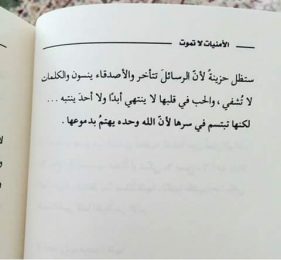 الأمنيات لا تموت
ستظل حزينةً لأنّ الرسائلَ تتأخر والأصدقاء ينسون والكلمات
لا تُشفي ، والحب في قلبها لا ينتهي أبدًا ولا أحدَ ينتبه ...
لكنها تبتسم في سرها لأنّ الله وحده يهتمُ بدموعها .